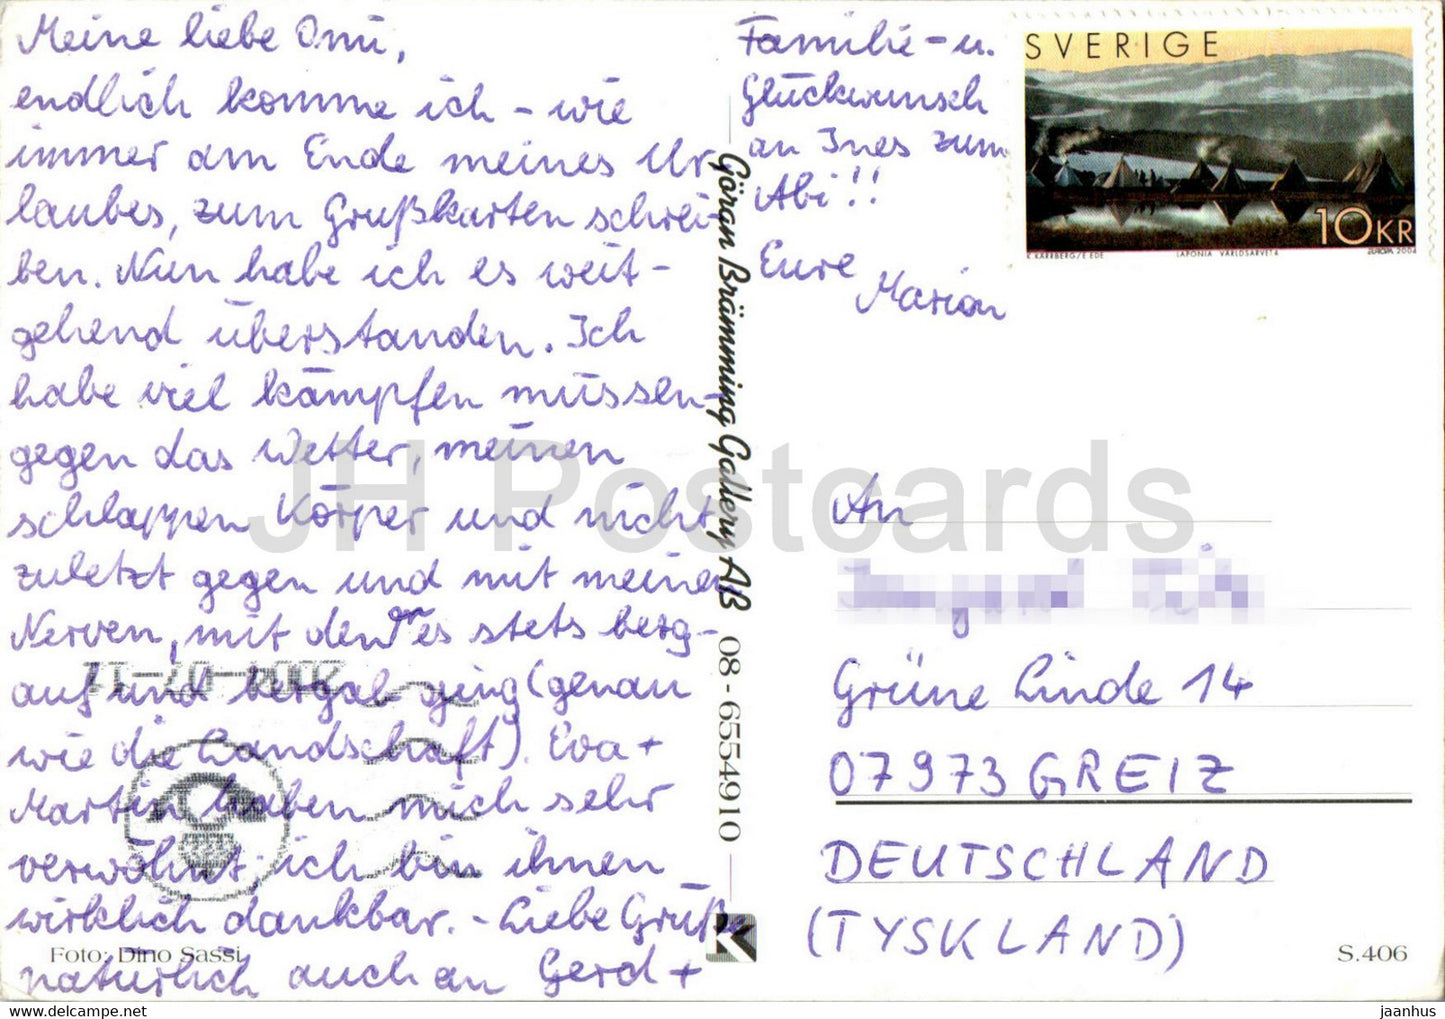 Meine liebe Omi,
endlich komme ich – wie
immer am Ende meines Ur-
laubes, zum Grußkarten schrei-
ben. Nun habe ich es weit-
gehend überstanden. Ich
habe viel kämpfen müssen –
gegen das Wetter, meinen
schlappen Körper und nicht
zuletzt gegen und mit meinen
Nerven, mit denen es stets berg-
auf und bergab ging (genau
wie die Landschaft). Eva +
Martin haben mich sehr
verwöhnt; ich bin ihnen
wirklich dankbar. – Liebe Grüße
natürlich auch an Gerd +
Familie – u.
Glückwunsch
an Ines zum
Abi!!
Eure
Marion
SVERIGE
10KR
K KÄRRBERG/E EDE
LAPONIA VÄRLDSARVET 4
EUROPA 2004
Göran Brämming Gallery AB 08-6554910
An
Grüne Linde 14
07973 GREIZ
DEUTSCHLAND
(TYSKLAND)
Foto: Dino Sassi
K
S.406
JH Postcards
jaanhus
www.delcampe.net